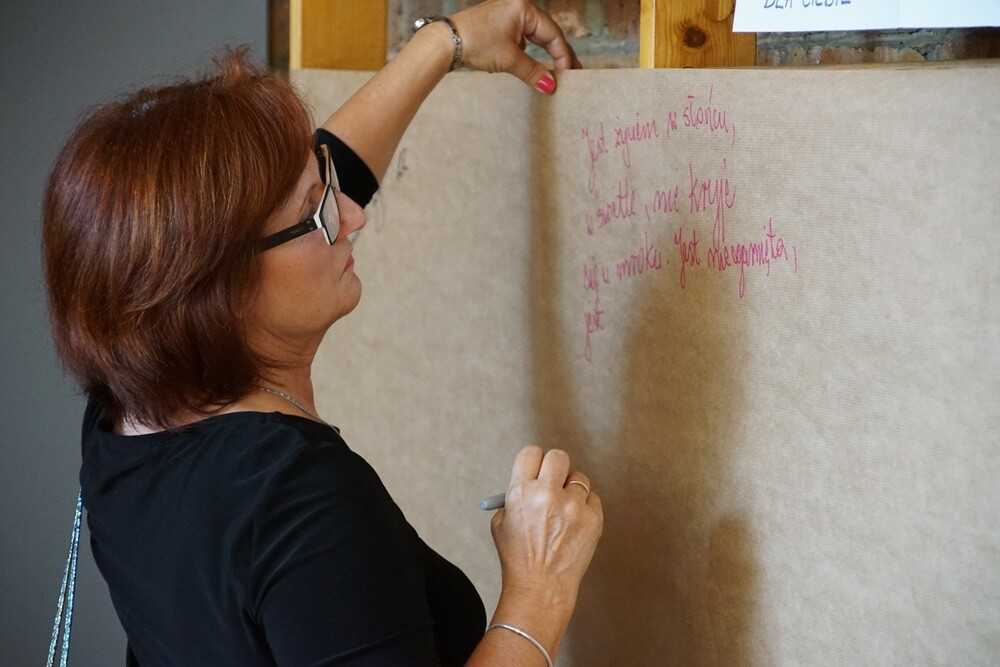 DLA CIEBIE
Jest życiem w słońcu,
w świetle, nie kryje
się w mroku. Jest nieogarnięta,
jest